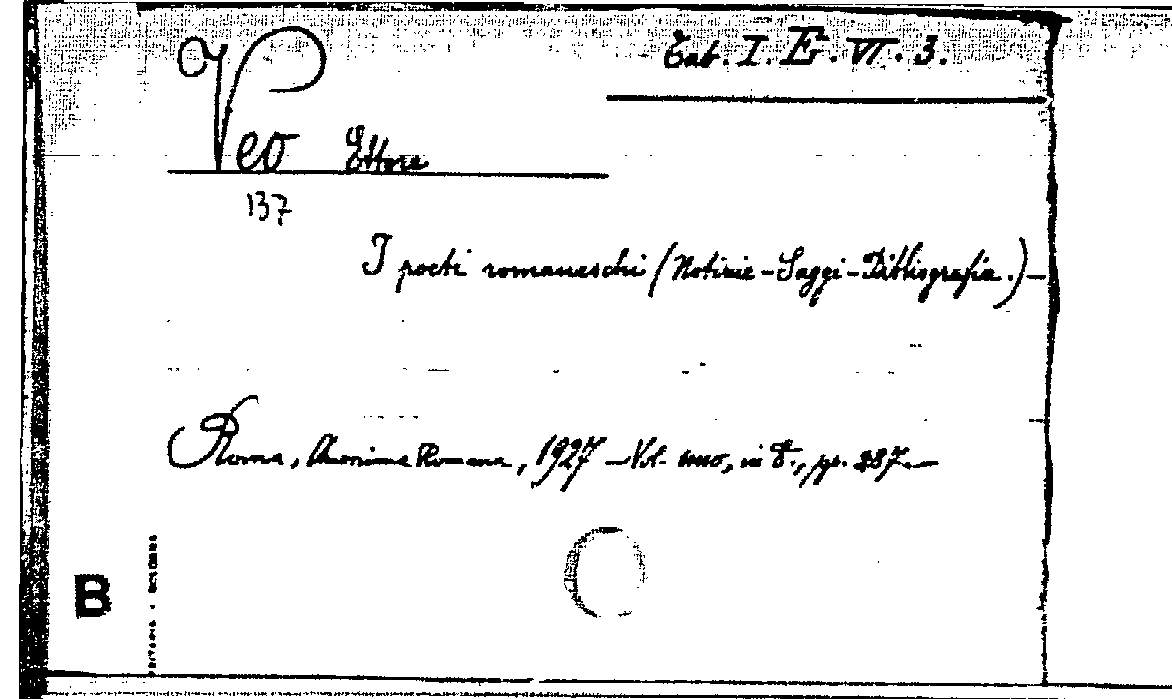 Tab. I. E. VI. 3.
Veo Ettore
137
I poeti romaneschi (Notizie - Saggi - Bibliografia.) -
Roma, Anonima Romana, 1927 - Vol. uno, in 8., pp. 287. -
B